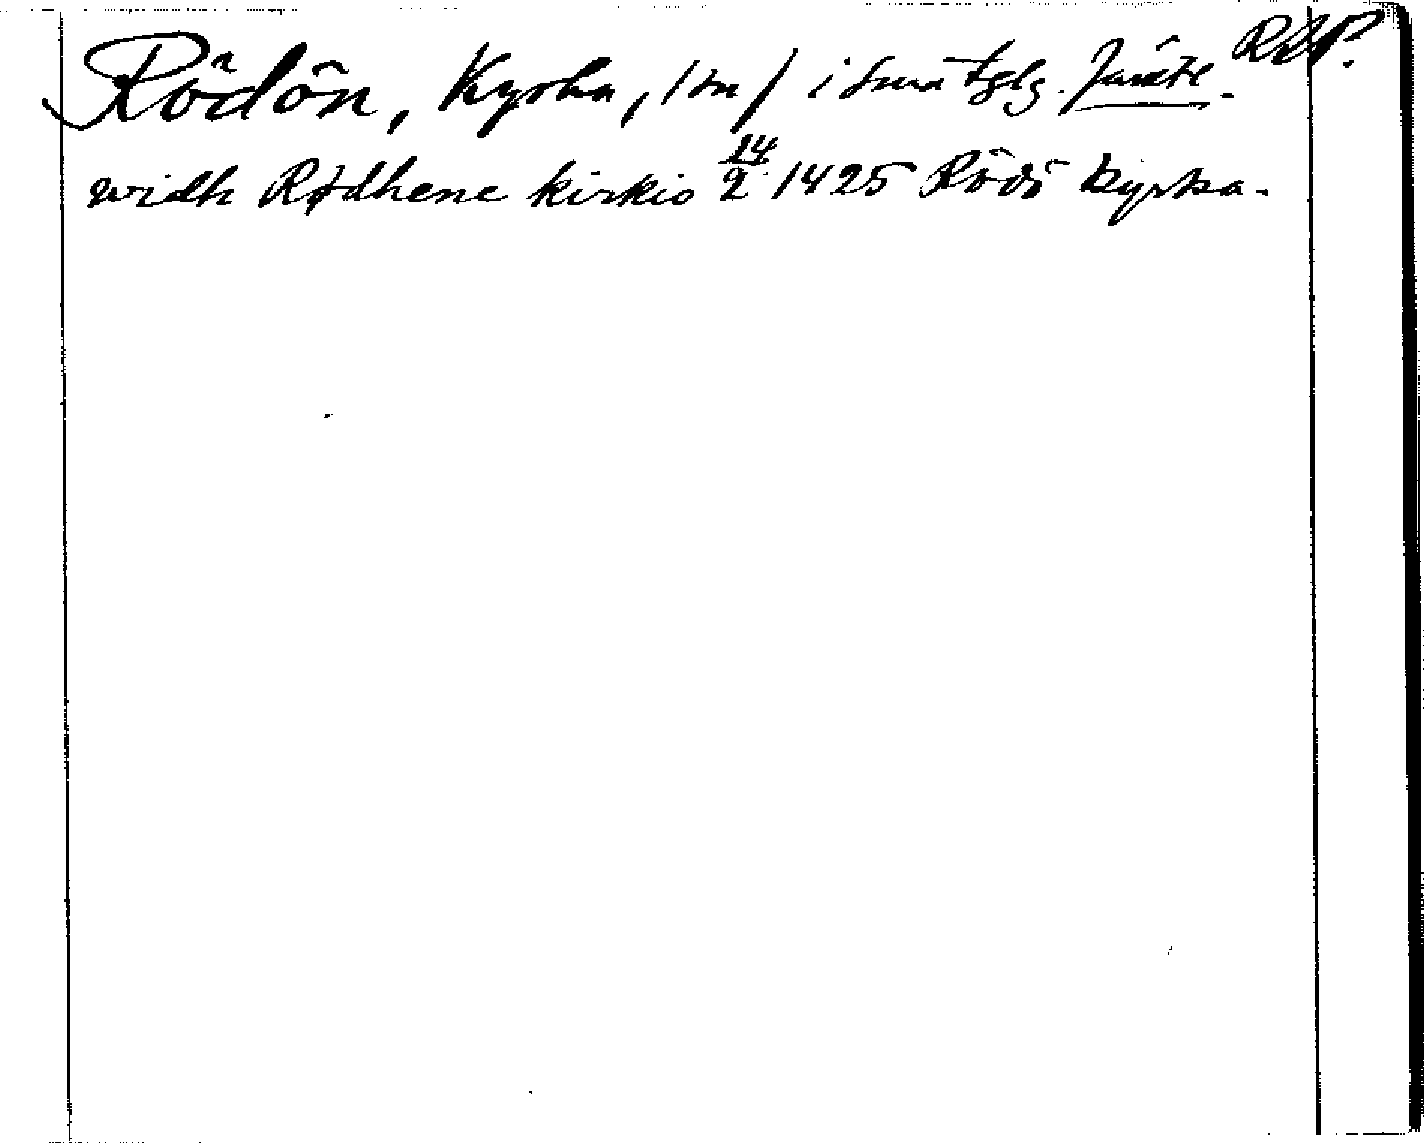 Rödön, Kyrka, /sn/ i Sunne tglg. Jämtl. RAP.
widh Rødhene kirkio 14/2 1425 Rödö kyrka.